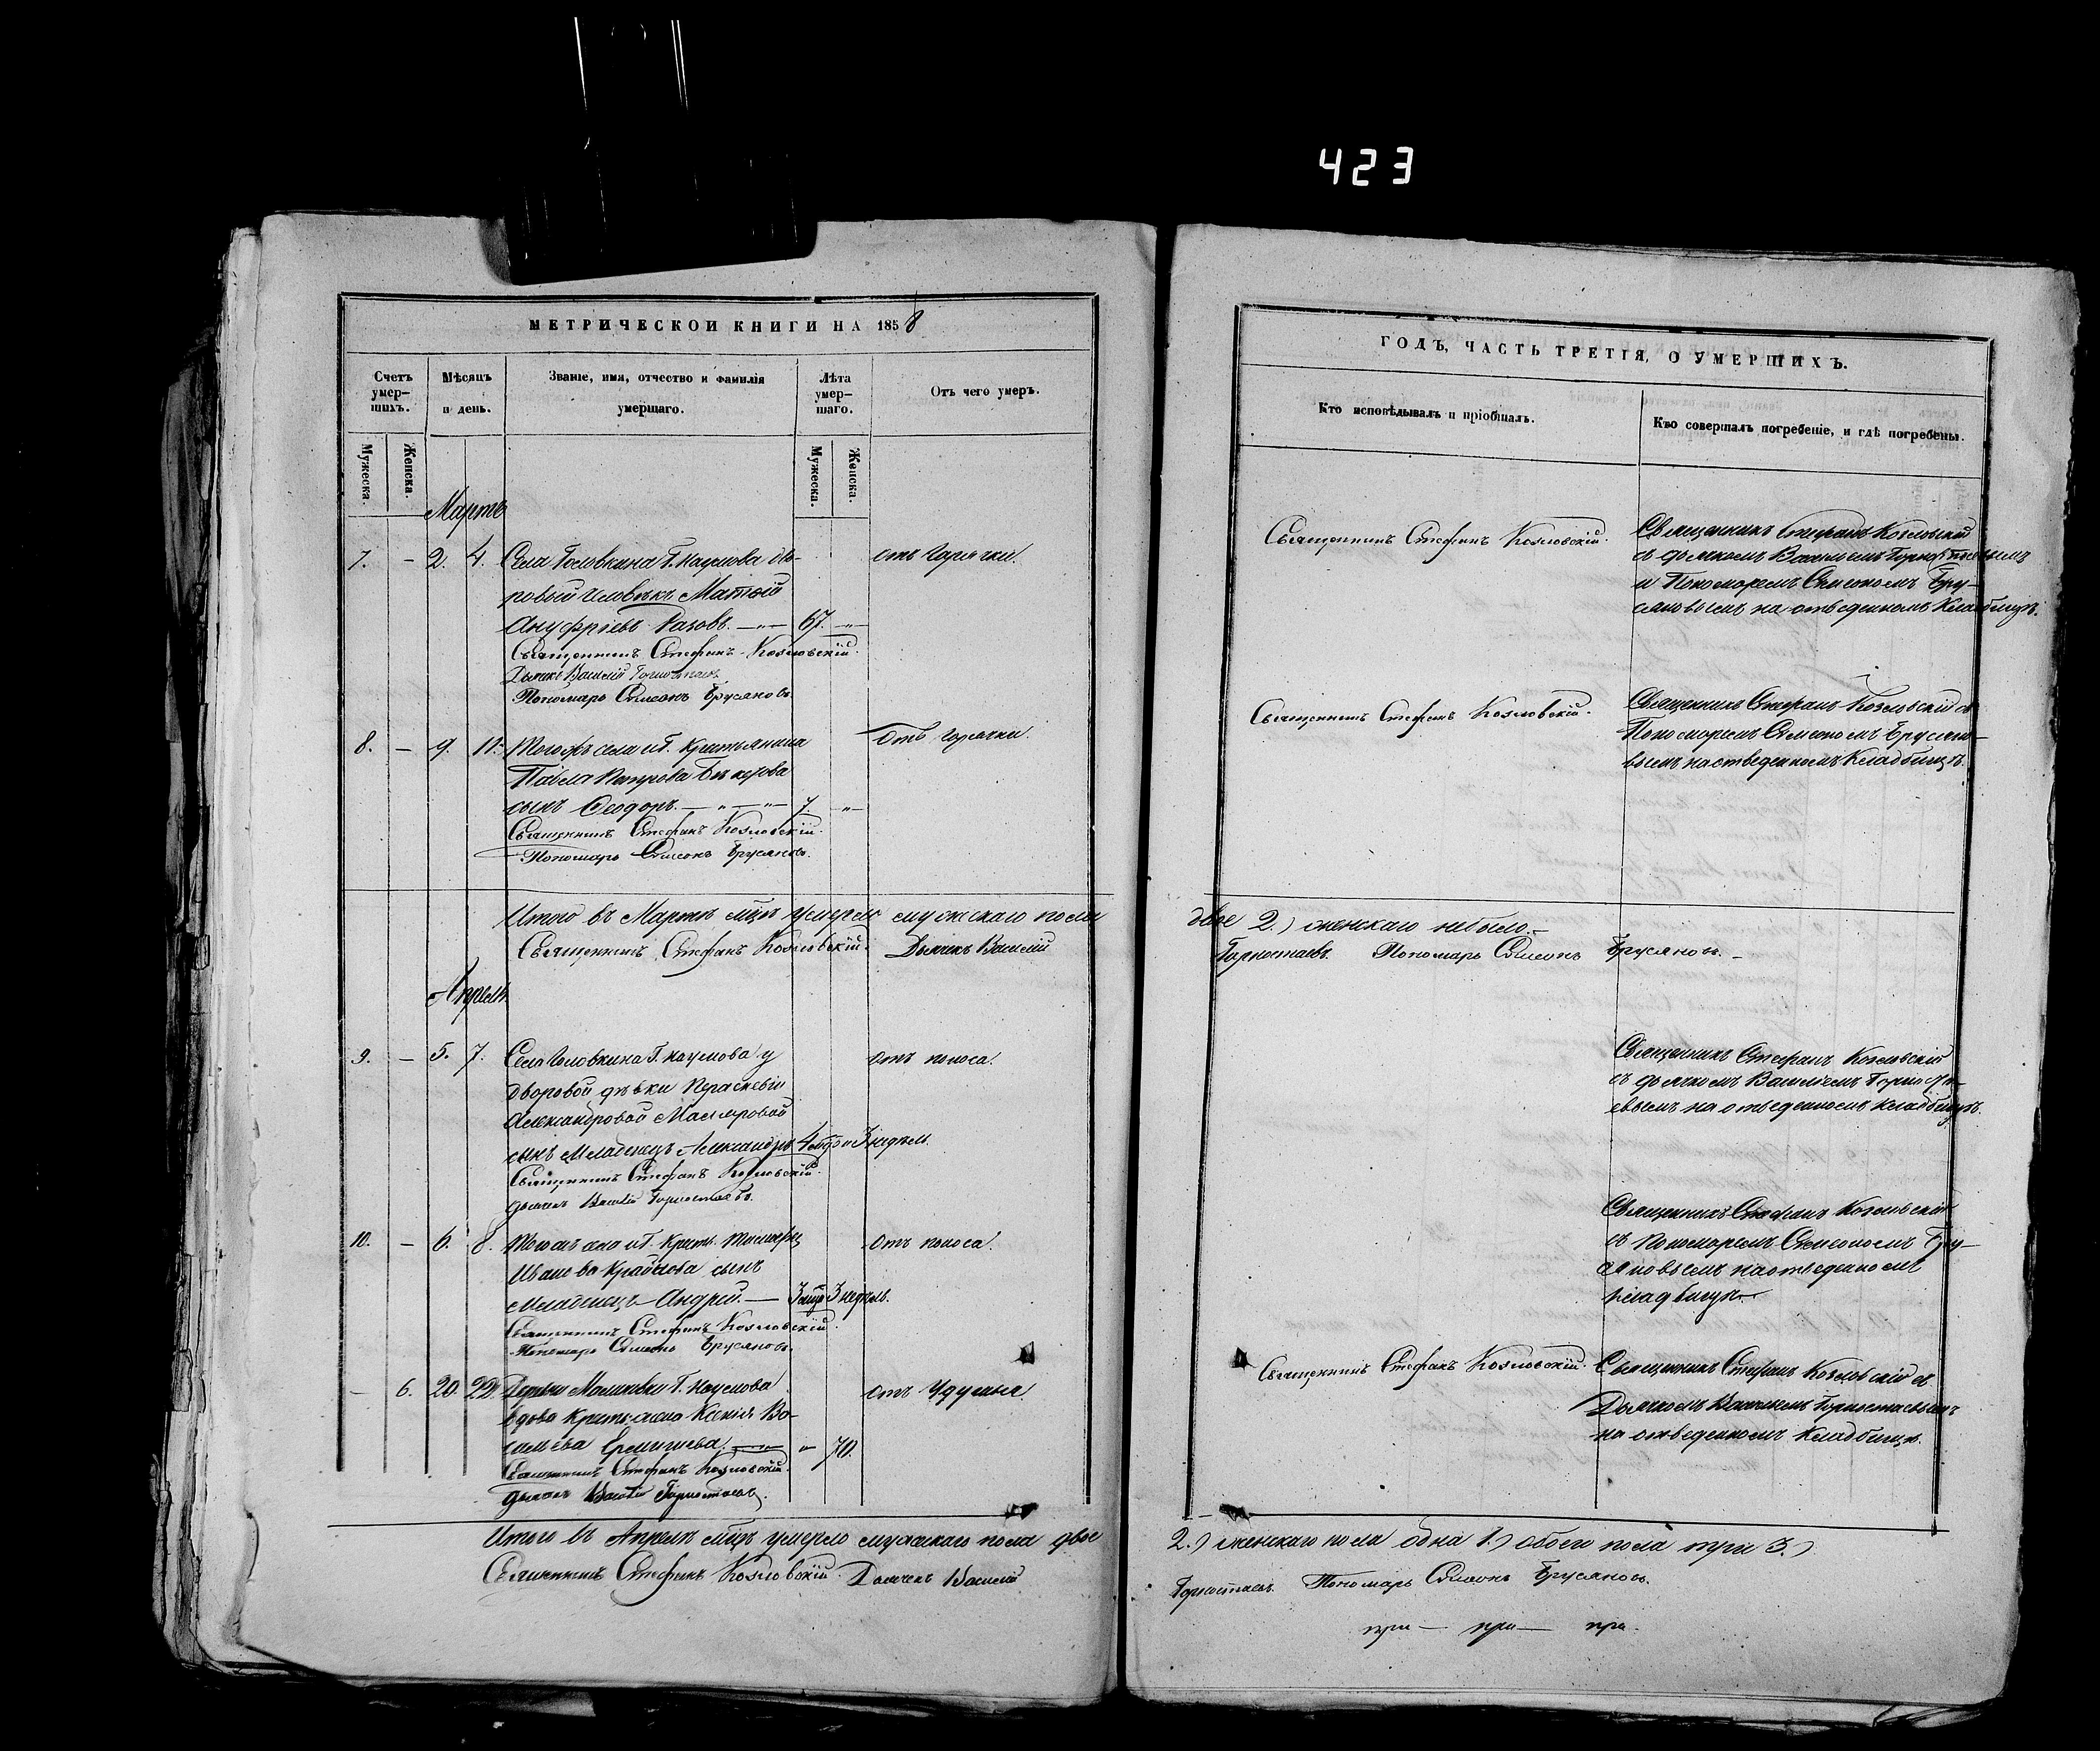 423
МЕТРИЧЕСКОЙ КНИГИ НА 1858
Счетъ умерших.
Мѣсяцъ и день.
Званіе, имя, отчество и фамилія умершаго.
Лѣта умершаго.
Отъ чего умеръ.
Мужеска.
Женска.
Мужеска.
Женска.
Мартъ
7. — 2. 4. Села Головкина Г. Наумова дво- отъ горячки.
ровый человѣкъ Матѳій
Ануфріевъ Разовъ. — 67. —
Священникъ Стефанъ Козловскій.
Дьячекъ Василій Горностаевъ
Пономарь Симеонъ Брусяновъ.
8. — 9. 11. Тогожъ села и Г. крестьянина Отъ горячки.
Павла Петрова
сынъ Ѳеодоръ. — 7. —
Священникъ Стефанъ Козловскій.
Пономарь Симеонъ Брусяновъ.
Итого въ Мартѣ мцѣ умерло мужскаго пола
Священникъ Стефанъ Козловскій. Дьячекъ Василій
Апрѣль
9. — 5. 7. Села Головкина Г. Наумова у отъ поноса.
дворовой дѣвки Параскевіи
Александровой
сынъ младенецъ Александръ 4 мцъ и 3 недѣл.
Священникъ Стефанъ Козловскій.
Дьячекъ Василій Горностаевъ.
10. — 6. 8. Тогожъ села и Г. крест. Отъ поноса.
Иванова сынъ
младенецъ Андрей. — 3 мцъ 3 недѣл.
Священникъ Стефанъ Козловскій.
Пономарь Симеонъ Брусяновъ.
— 6. 20. 22. Деревни Г. Наумова отъ удушья
вдова крестьянка Ксенія Ва-
сильева — 70.
Священникъ Стефанъ Козловскій.
Дьячекъ Василій Горностаевъ.
Итого въ Апрѣлѣ мцѣ умерло мужскаго пола двое
Священникъ Стефанъ Козловскій. Дьячекъ Василій
ГОДЪ, ЧАСТЬ ТРЕТІЯ, О УМЕРШИХЪ.
Кто исповѣдывалъ и пріобщалъ.
Кто совершалъ погребеніе, и гдѣ погребены.
Священникъ Стефанъ Козловскій.
Священникъ Стефанъ Козловскій
съ дьячкомъ Василіемъ Горностаевымъ
и Пономаремъ Симеономъ Бру-
сяновымъ на отведенномъ кладбищѣ.
Священникъ Стефанъ Козловскій.
Священникъ Стефанъ Козловскій съ
Пономаремъ Симеономъ Брусяно-
вымъ на отведенномъ кладбищѣ.
двое 2.) женскаго небыло.
Горностаевъ. Пономарь Симеонъ Брусяновъ. —
Священникъ Стефанъ Козловскій
съ дьячкомъ Василіемъ Горноста-
евымъ на отведенномъ кладбищѣ.
Священникъ Стефанъ Козловскій
съ Пономаремъ Симеономъ Бру-
сяновымъ на отведенномъ
кладбищѣ.
Священникъ Стефанъ Козловскій.
Священникъ Стефанъ Козловскій съ
Дьячкомъ Василіемъ Горностаевымъ
на отведенномъ кладбищѣ.
2.) женскаго пола одна 1.) обоего пола три 3.)
Горностаевъ. Пономарь Симеонъ Брусяновъ.
при — при — при.